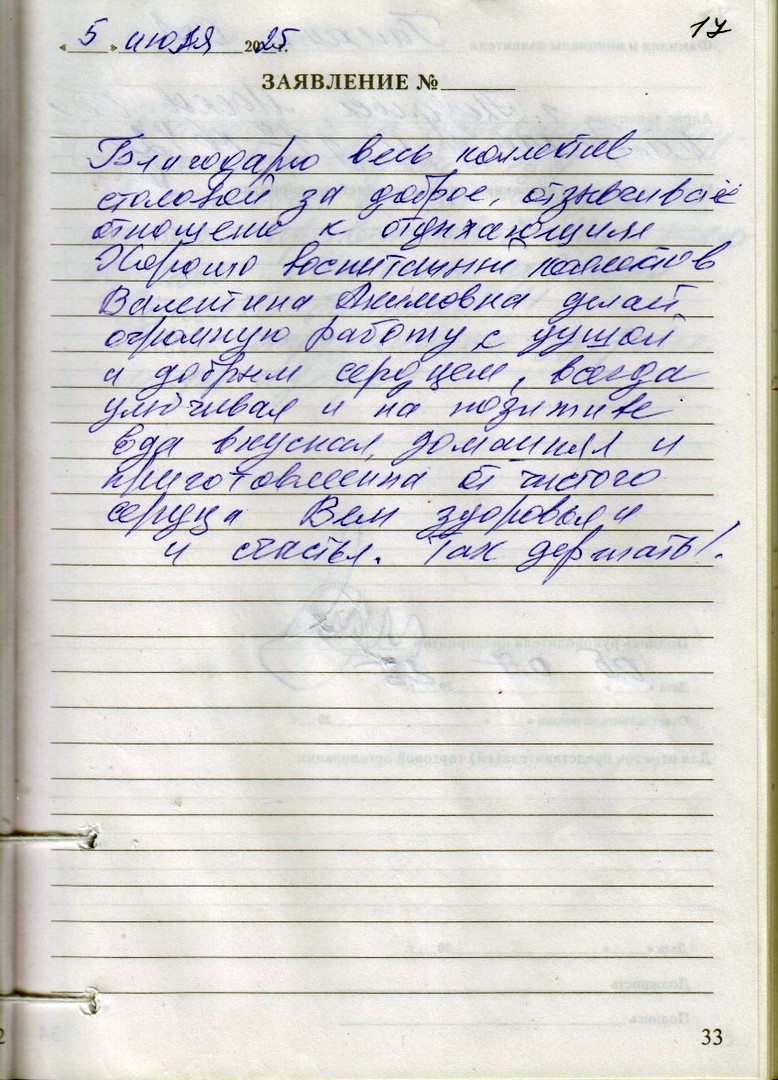 17
« 5 » июля 2025 г.
ЗАЯВЛЕНИЕ №
Благодарю весь коллектив
столовой за доброе, отзывчивое
отношение к отдыхающим
Хорошо воспитанный коллектив
Валентина Акимовна делает
огромную работу с душой
и добрым сердцем, всегда
улыбчивая и на позитиве
Еда вкусная, домашняя и
приготовленна от чистого
сердца Вам здоровья и
и счастья. Так держать!.
33